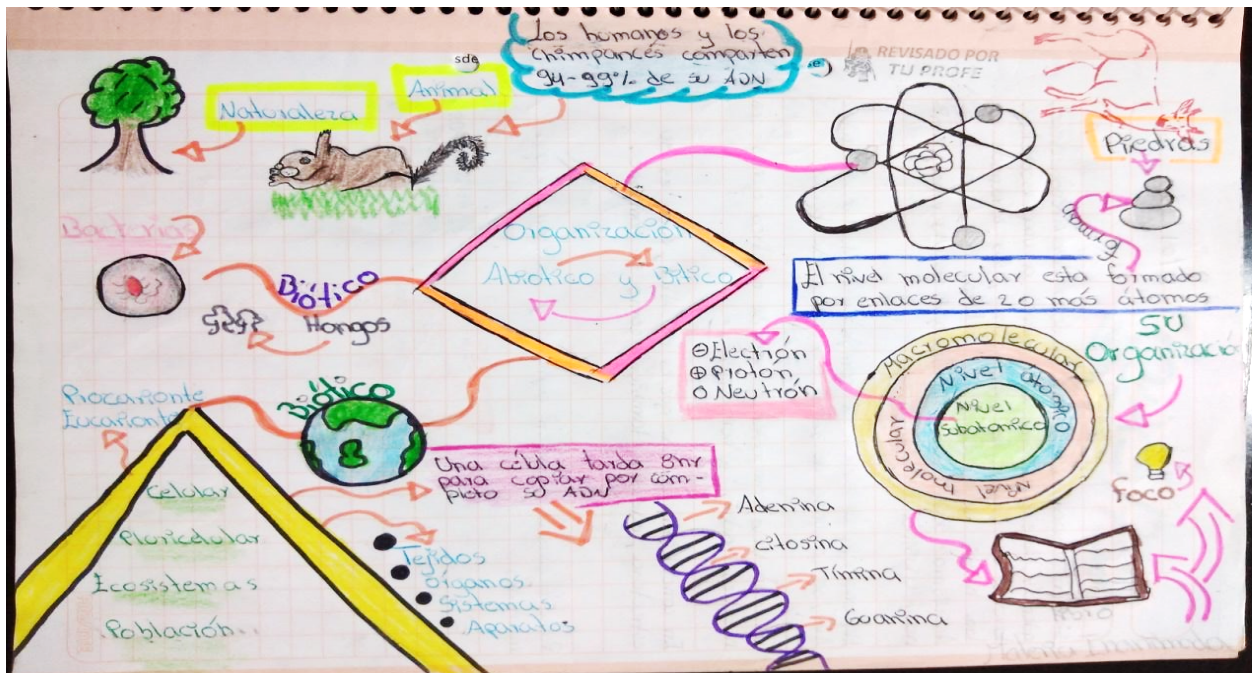 Los humanos y los
chimpancés comparten
94-99% de su ADN
sde
REVISADO POR
TU PROFE
Naturaleza
Animal
Piedras
Forman
Bacterias
Biótico
Hongos
Organización
Abiotico y Bitico
El nivel molecular esta formado
por enlaces de 2 o más átomos
⊖Electrón
⊕Protón
O Neutrón
Su
Organizació
Macromolecular
Nivel molecular
Nivel átomico
Nivel
Subatomico
Foco
Procarionte
Eucarionte
Biótico
Una célula tarda 8hr
para copiar por com-
pleto su ADN
Celular
Pluricelular
Ecosistemas
Población...
Tejidos
Organos
Sistemas
Aparatos
Adenina
citosina
Timina
Guanina
Materia Inanimada